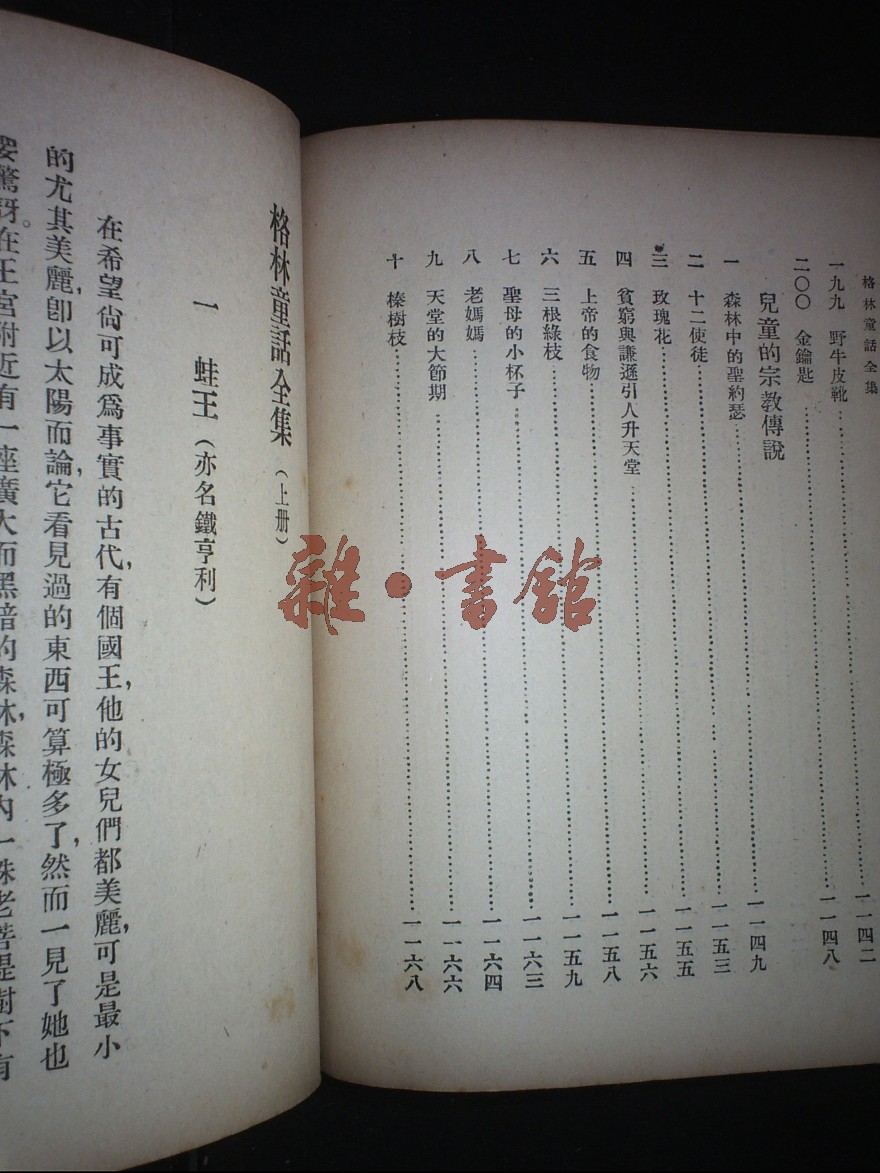 格林童話全集
一九九 野牛皮靴……一一四二
二〇〇 金鑰匙……一一四八
兒童的宗教傳說
一 森林中的聖約瑟……一一四九
二 十二使徒……一一五三
三 玫瑰花……一一五五
四 貧窮與謙遜引人升天堂……一一五六
五 上帝的食物……一一五八
六 三根綠枝……一一五九
七 聖母的小杯子……一一六三
八 老媽媽……一一六四
九 天堂的大節期……一一六六
十 榛樹枝……一一六八
格林童話全集（上册）
一 蛙王（亦名鐵亨利）
在希望尙可成爲事實的古代，有個國王，他的女兒們都美麗，可是最小
的尤其美麗，卽以太陽而論，它看見過的東西可算極多了，然而一見了她也
要驚訝。在王宮附近有一座廣大而黑暗的森林，森林內一株老菩提樹下有
雜·書館